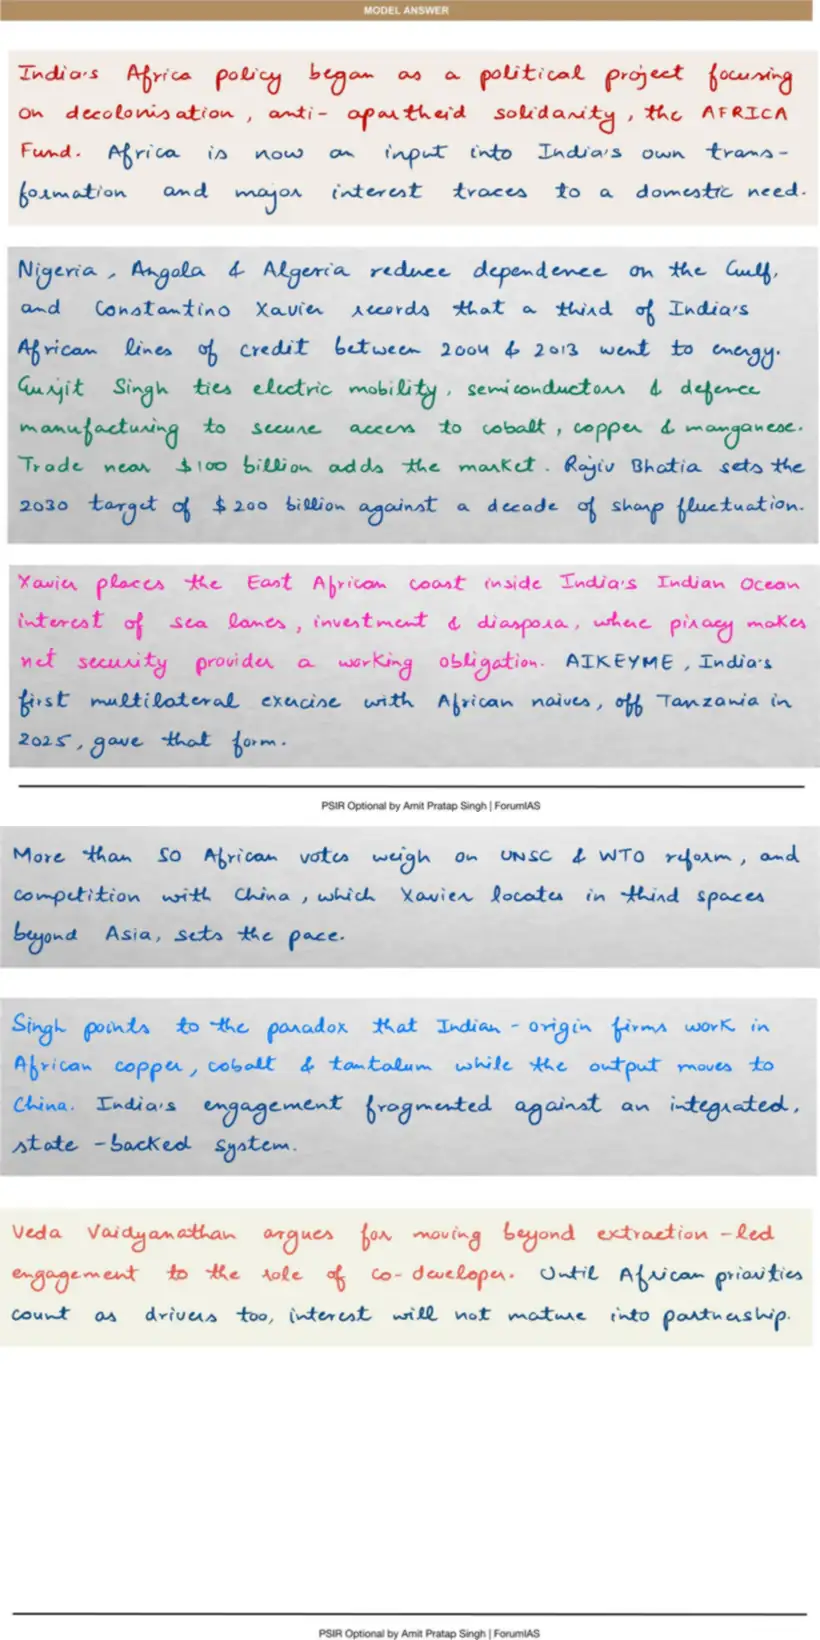 MODEL ANSWER
India's Africa policy began as a political project focusing
on decolonisation, anti- apartheid solidarity, the AFRICA
Fund. Africa is now an input into India's own trans-
formation and major interest traces to a domestic need.
Nigeria, Angola & Algeria reduce dependence on the Gulf,
and Constantino Xavier records that a third of India's
African lines of credit between 2004 & 2013 went to energy.
Gurjit Singh ties electric mobility, semiconductors & defence
manufacturing to secure access to cobalt, copper & manganese.
Trade near $100 billion adds the market. Rajiv Bhatia sets the
2030 target of $200 billion against a decade of sharp fluctuation.
Xavier places the East African coast inside India's Indian Ocean
interest of sea lanes, investment & diaspora, where piracy makes
net security provider a working obligation. AIKEYME, India's
first multilateral exercise with African naives, off Tanzania in
2025, gave that form.
PSIR Optional by Amit Pratap Singh | ForumIAS
More than 50 African votes weigh on UNSC & WTO reform, and
competition with China, which Xavier locates in third spaces
beyond Asia, sets the pace.
Singh points to the paradox that Indian-origin firms work in
African copper, cobalt & tantalum while the output moves to
China. India's engagement fragmented against an integrated,
state-backed system.
Veda Vaidyanathan argues for moving beyond extraction-led
engagement to the role of co-developer. Until African priorities
count as drivers too, interest will not mature into partnership.
PSIR Optional by Amit Pratap Singh | ForumIAS